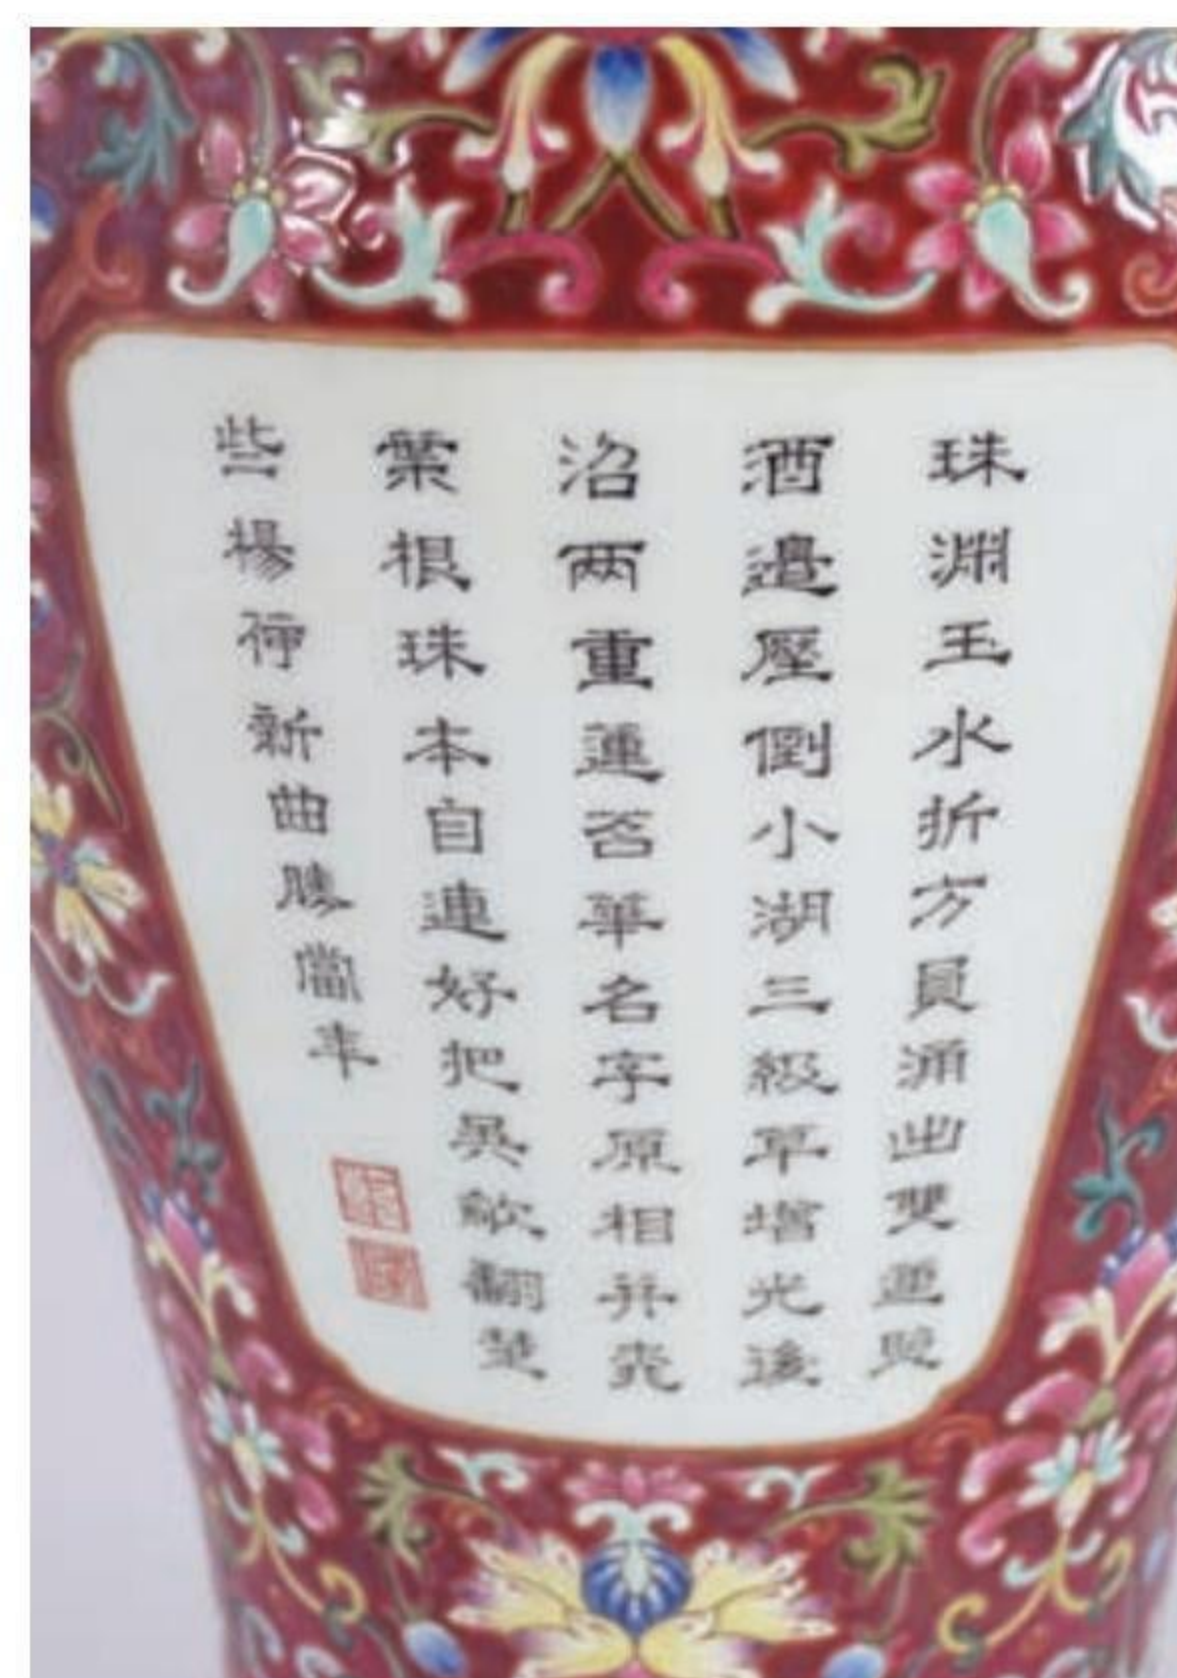 珠淵玉水折方員涌出雙蓮照
酒邊壓倒小湖三級草增光後
沼两重蓮苕華名字原相并桃
葉根珠本自連好把吳歈翻楚
些揚荷新曲勝當年